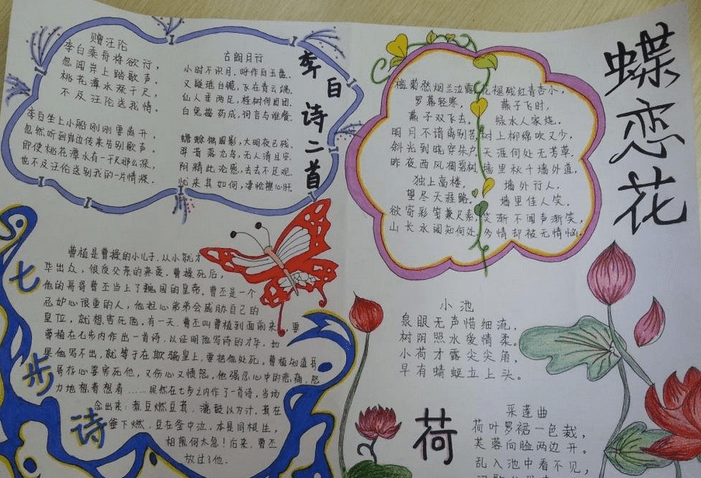 赠汪伦
李白乘舟将欲行,
忽闻岸上踏歌声。
桃花潭水深千尺,
不及汪伦送我情。
李白坐上小船刚刚要离开,
忽然听到岸边传来告别歌声。
即使桃花潭水有一千尺那么深,
也不及汪伦送别我的一片情深。
古朗月行
小时不识月,呼作白玉盘。
又疑瑶台镜,飞在青云端。
仙人垂两足,桂树何团团。
白兔捣药成,问言与谁餐。
蟾蜍蚀圆影,大明夜已残。
羿昔落九乌,天人清且安。
阴精此沦惑,去去不足观。
忧来其如何,凄怆摧心肝
李白诗二首
蝶恋花
槛菊愁烟兰泣露
罗幕轻寒,
燕子双飞去。
明月不谙离别苦
斜光到晓穿朱户
昨夜西风凋碧树
独上高楼,
望尽天涯路。
欲寄彩笺兼尺素
山长水阔知何处
花褪残红青杏小,
燕子飞时,
绿水人家绕。
枝上柳绵吹又少,
天涯何处无芳草。
墙里秋千墙外道,
墙外行人,
墙里佳人笑。
笑渐不闻声渐笑,
多情却被无情恼。
七步诗
曹植是曹操的小儿子,从小就才
华出众,很受父亲的亲爱。曹操死后,
他的哥哥曹丕当上了魏国的皇帝。曹丕是一个
忌妒心很重的人,他担心弟弟会威胁自己的
皇位,就想害死他。有一天,曹丕叫曹植到面前来,要
曹植在七步内作出一首诗,以证明他写诗的才华。如
果他写不出,就等于在欺骗皇上,要把他处死。曹植知道哥
哥存心要害死他,又伤心又愤怒。他强忍心中的悲痛,努
力地想着想着……果然在七步之内作了一首诗,当场
念出来:煮豆燃豆萁,漉豉以为汁,萁在
釜下燃,豆在釜中泣,本是同根生,
相煎何太急!后来,曹丕
放过了他。
小池
泉眼无声惜细流,
树阴照水爱情柔。
小荷才露尖尖角,
早有蜻蜓立上头。
荷
采莲曲
荷叶罗裙一色裁,
芙蓉向脸两边开。
乱入池中看不见,